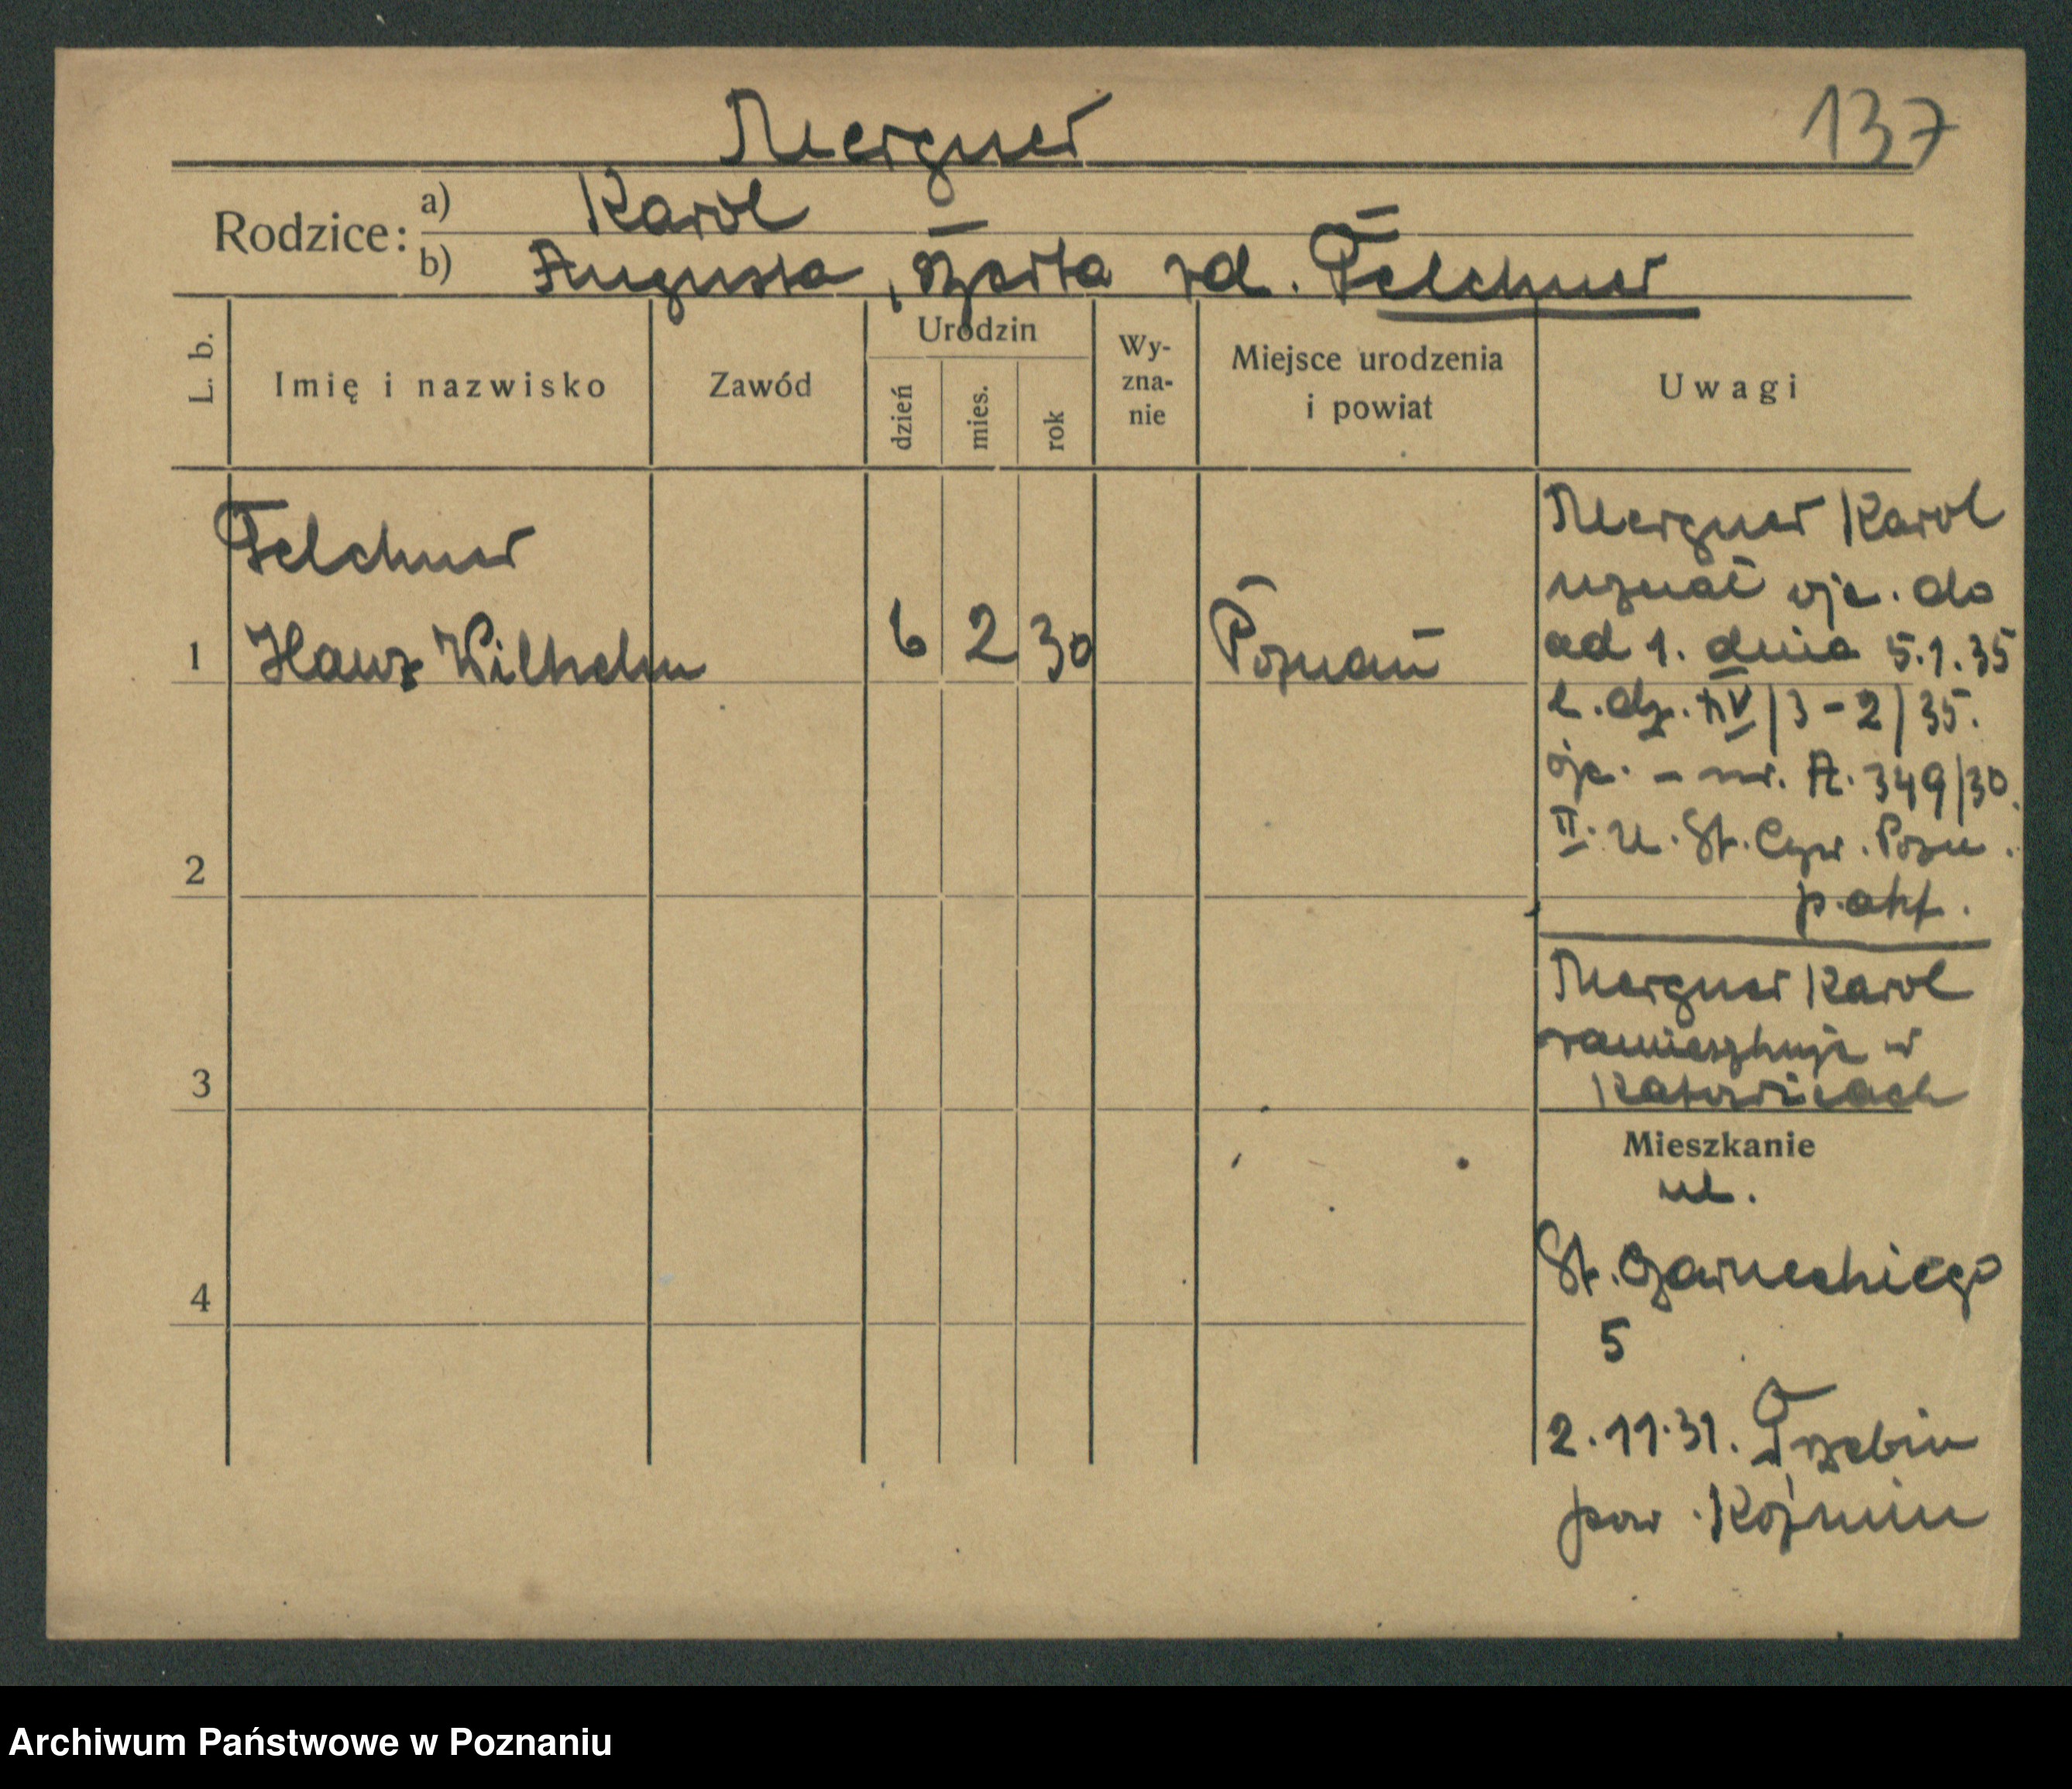 Mergner
137
Rodzice:
a) Karol
b) Augusta, Berta rd. Felchner
L. b.
Imię i nazwisko
Zawód
Urodzin
dzień
mies.
rok
Wy-
zna-
nie
Miejsce urodzenia
i powiat
Uwagi
Felchner
1 Hans Wilhelm 6 2 30 Poznań
2
3
4
Mergner Karol
uznał ojc. do
ad 1. dnia 5.1.35
l.dz. XV/3-2/35.
ojc. - nr. A. 349/30.
II. U. St. Cyw. Pozn.
p. akt.
Mergner Karol
zamieszkuje w
Katowicach
Mieszkanie
ul.
St. Czarneckiego
5
2.11.31. Trzebin
pow. Koźmin
Archiwum Państwowe w Poznaniu